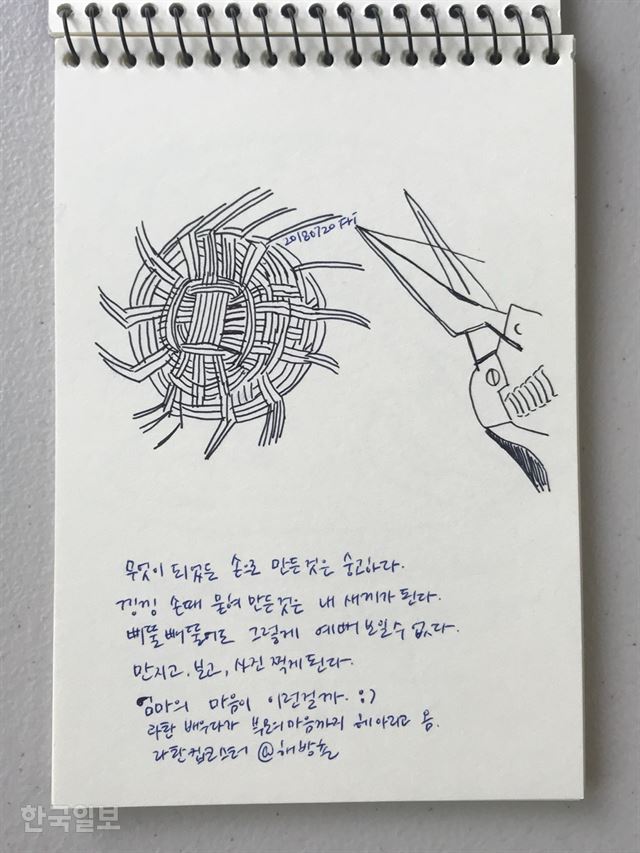 20180720 Fri
무엇이 되었든 손으로 만든것은 숭고하다.
낑낑 손때 묻혀 만든것은 내 새끼가 된다.
삐뚤빼뚤어도 그렇게 예뻐 보일수 없다.
만지고, 보고, 사진 찍게된다.
엄마의 마음이 이런걸까. :)
라탄 배우다가 부모의마음까지 헤아리고 옴.
라탄컵코스터 @해방촌
한국일보